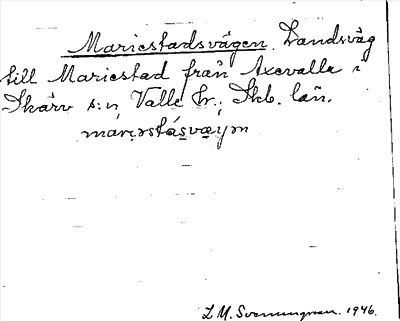 Mariestadsvägen. Landsväg
till Mariestad från Axevalla i
Skärv s:n, Valle hr., Skb. län.
L M. Svenungsson. 1946.